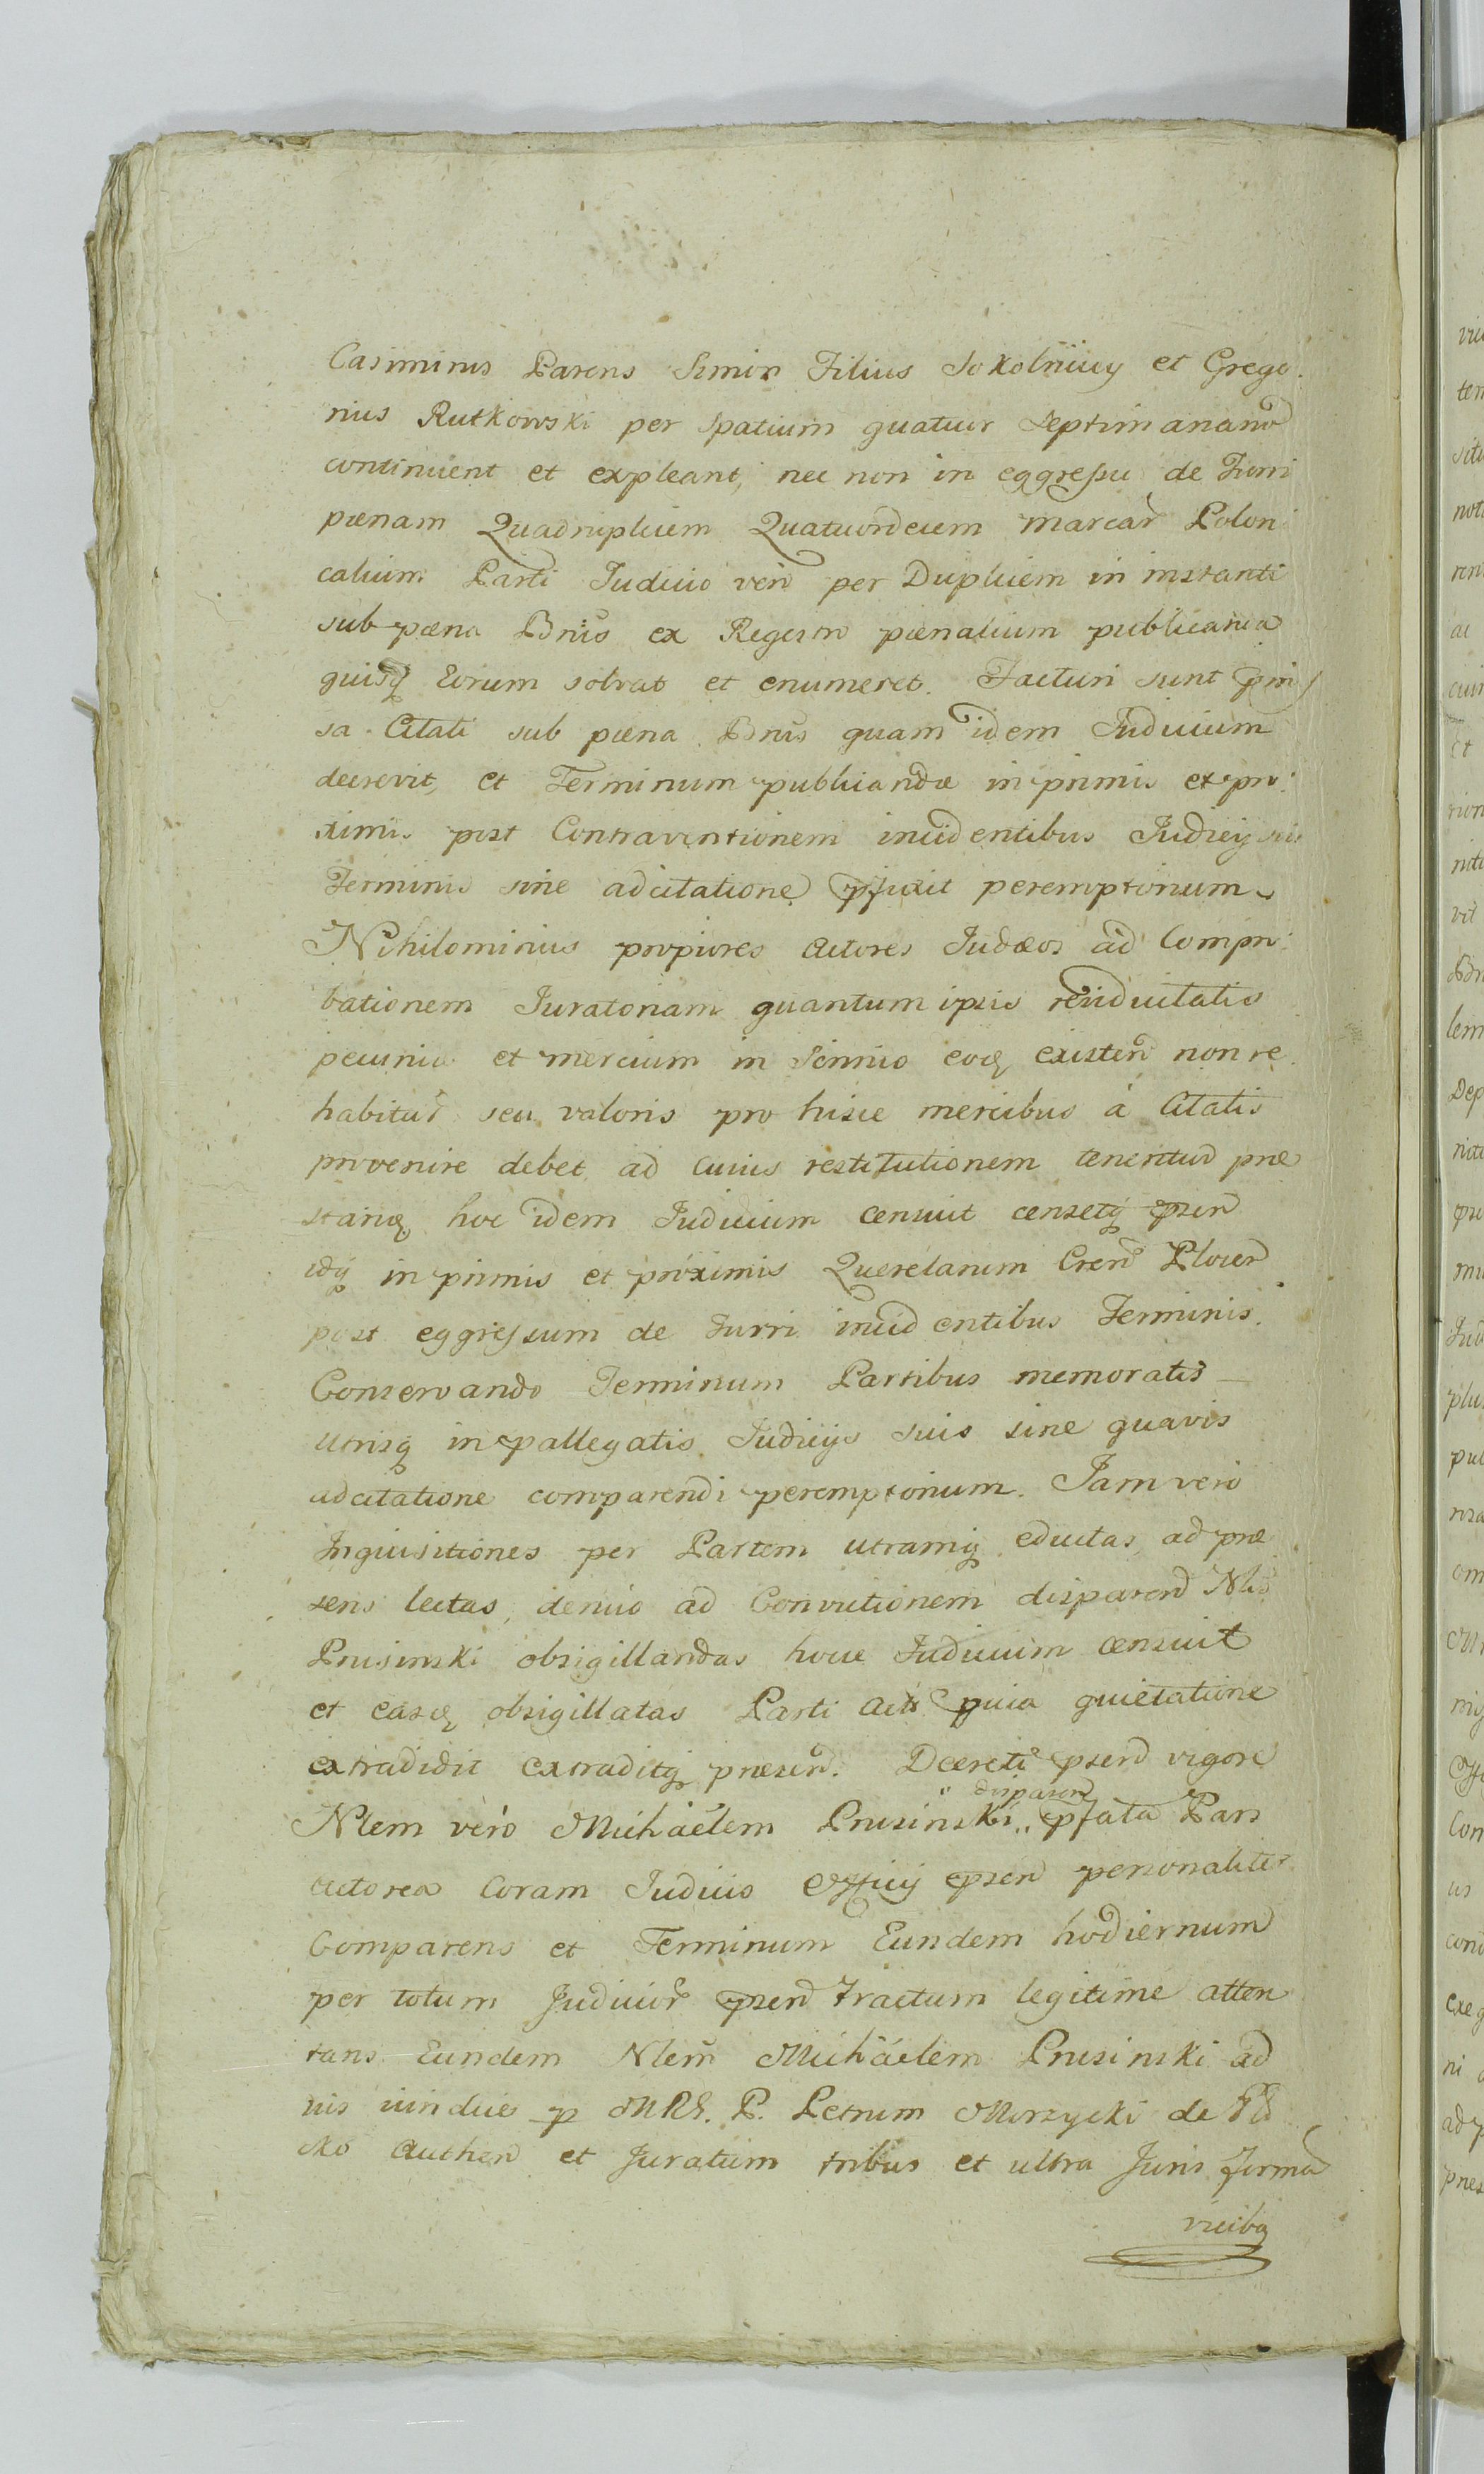 Casimirus Parens Simon Filius Sokolniccy et Grego
rius Rutkowski per Spatium quatuor Septimanarũ
continuent et expleant, nec non in eggressu de Turri
pœnam Quadruplicem Quatuordecem marcar̃ Poloni
calium Parti Judicio verò per Duplicem in instanti
sub pœna Bnĩs ex Regestro pœnalium publicanda
quisq̃ Eorum solvat et enumeret. Facturi sunt p̃mis
sa Citati sub pœna Bnĩs quam idem Judicium
decrevit, et Terminum publicandæ in primis et pro
ximis post Contraventionem incidentibus Judicijs suis
Terminis sine adcitatione p̃fixit peremptorium.
Nihilominus propiores Actores Judæos ad Compro
bationem Juratoriam quantum ipsis
pecuniæ et mercium in Scrinio eoq̃ existeñ non re
habitar̃ seu valoris pro hisce mercibus á Citatis
provenire debet ad cuius restitutionem tenentur præ
standã, hoc idem Judicium censuit censetq̃ p̃sen̄
idq̃ in primis et próximis Querelarum Cren̄ Plocen̄
post eggressum de Turri incidentibus Terminis.
Conservando Terminum Partibus memoratis
utrisq̃ in p̃allegatis Judicijs suis sine quavis
adcitatione comparendi peremptorium. Jam verò
Inquisitiones per Partem utramq̃ eductas, ad præ
sens lectas, denuò ad Convictionem disparen̄ Nlis
Prusinski obsigillandas hocce Judicium censuit
et easq̃ obsigillatas Parti Actr̃ quietatione
extradidit extraditq̃ præsen̄. Decreti p̃sen̄ vigore
disparen̄
Nlem verò Michaëlem Prusinski,, p̃fata Pars
Actorea Coram Judicio Officij p̃sen̄ personaliter
Comparens et Terminum Eundem hodiernum
per totum Judicior̃ p̃sen̄ tractum legitime atten
tans Eundem Nlem̃ Michaëlem Prusinski ad
p̃ MRS. P. Petrum Morzycki de Pło
cko Authen̄ et Juratum tribus et ultra Juris formã
vicibq̃